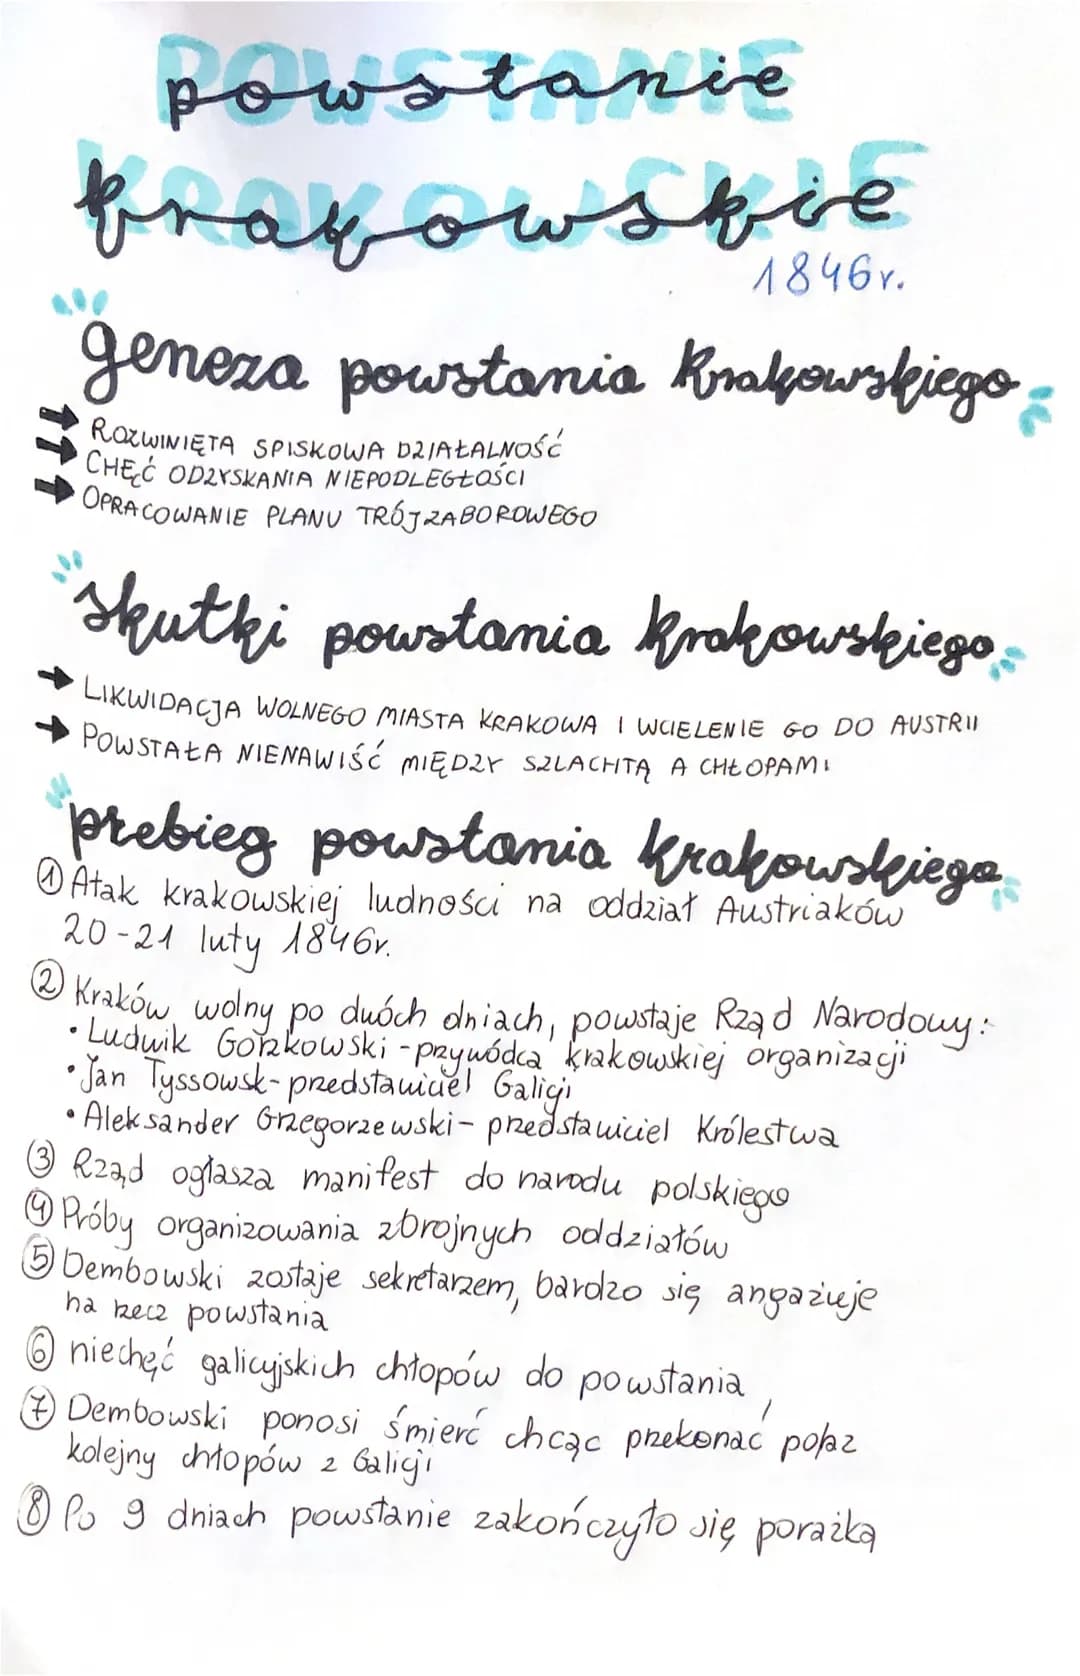 powstanie
krakowskie
1846r.
geneza powstania krakowskiego
ROZWINIĘTA SPISKOWA DZIAŁALNOŚĆ
CHĘĆ ODZYSKANIA NIEPODLEGŁOŚCI
OPRACOWANIE PLANU TRÓJZABOROWEGO
skutki powstania krakowskiego
LIKWIDACJA WOLNEGO MIASTA KRAKOWA I WCIELENIE GO DO AUSTRII
POWSTAŁA NIENAWIŚĆ MIĘDZY SZLACHTĄ A CHŁOPAMI
przebieg powstania krakowskiego
① Atak krakowskiej ludności na oddział Austriaków
20-21 luty 1846r.
② Kraków wolny po dwóch dniach, powstaje Rząd Narodowy:
• Ludwik Gorzkowski - przywódca krakowskiej organizacji
• Jan Tyssowsk - przedstawiciel Galicji
• Aleksander Grzegorzewski - przedstawiciel Królestwa
③ Rząd ogłasza manifest do narodu polskiego
④ Próby organizowania zbrojnych oddziałów
⑤ Dembowski zostaje sekretarzem, bardzo się angażuje
na rzecz powstania
⑥ niechęć galicyjskich chłopów do powstania
⑦ Dembowski ponosi śmierć chcąc przekonać po raz
kolejny chłopów z Galicji
⑧ Po 9 dniach powstanie zakończyło się porażką